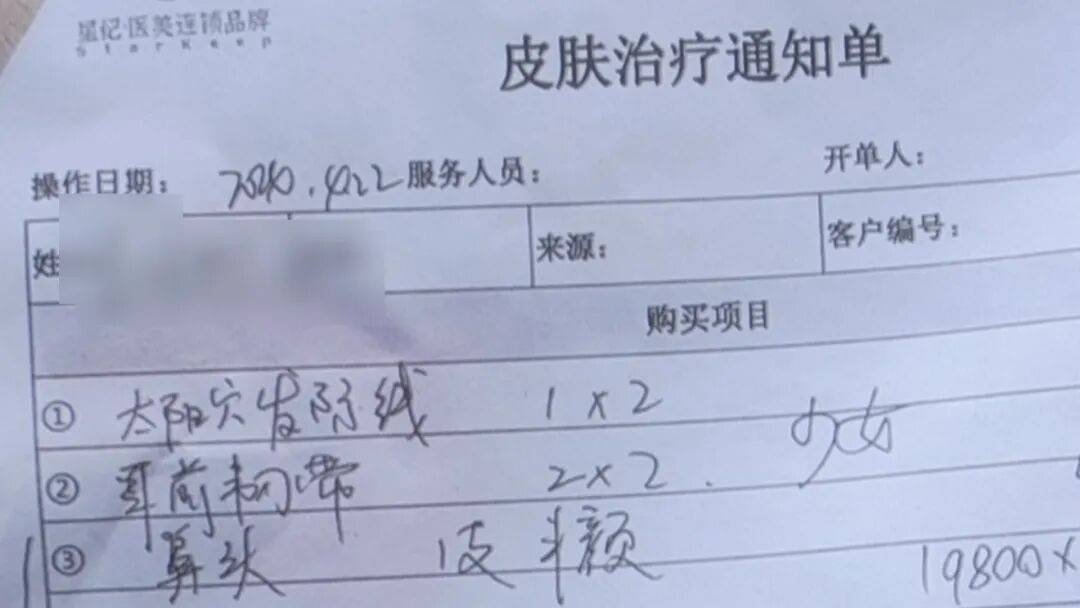 星纪·医美连锁品牌
StarKeep
皮肤治疗通知单
操作日期： 服务人员： 开单人：
姓 来源： 客户编号：
购买项目
① 太阳穴发际线 1×2 少女
② 耳前韧带 2×2.
③ 鼻头 1支 半额 19800×